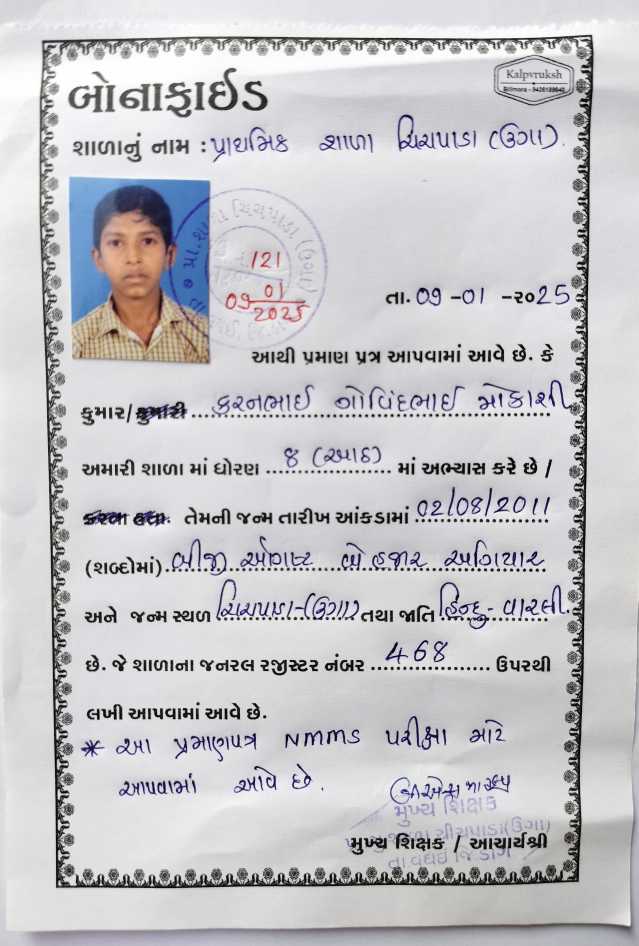 Kalpvruksh
બોનાફાઈડ
શાળાનું નામ : પ્રાથમિક શાળા ચિચપાડા (ઉગા).
121
09 01
2025
તા. 09 -01 -૨૦25
આથી પ્રમાણ પત્ર આપવામાં આવે છે. કે
કુમાર/કુમારી કરનભાઈ ગોવિંદભાઈ મોકાશી
અમારી શાળા માં ધોરણ 8 (આઠ) માં અભ્યાસ કરે છે /
કરતા હતા. તેમની જન્મ તારીખ આંકડામાં 02/08/2011
(શબ્દોમાં) બીજી ઓગષ્ટ બે હજાર અગિયાર
અને જન્મ સ્થળ ચિચપાડા-(ઉગા) તથા જાતિ હિન્દુ - વારલી.
છે. જે શાળાના જનરલ રજીસ્ટર નંબર 468 ઉપરથી
લખી આપવામાં આવે છે.
* આ પ્રમાણપત્ર NMMS પરીક્ષા માટે
આપવામાં આવે છે.
મુખ્ય શિક્ષક
મુખ્ય શિક્ષક / આચાર્યશ્રી